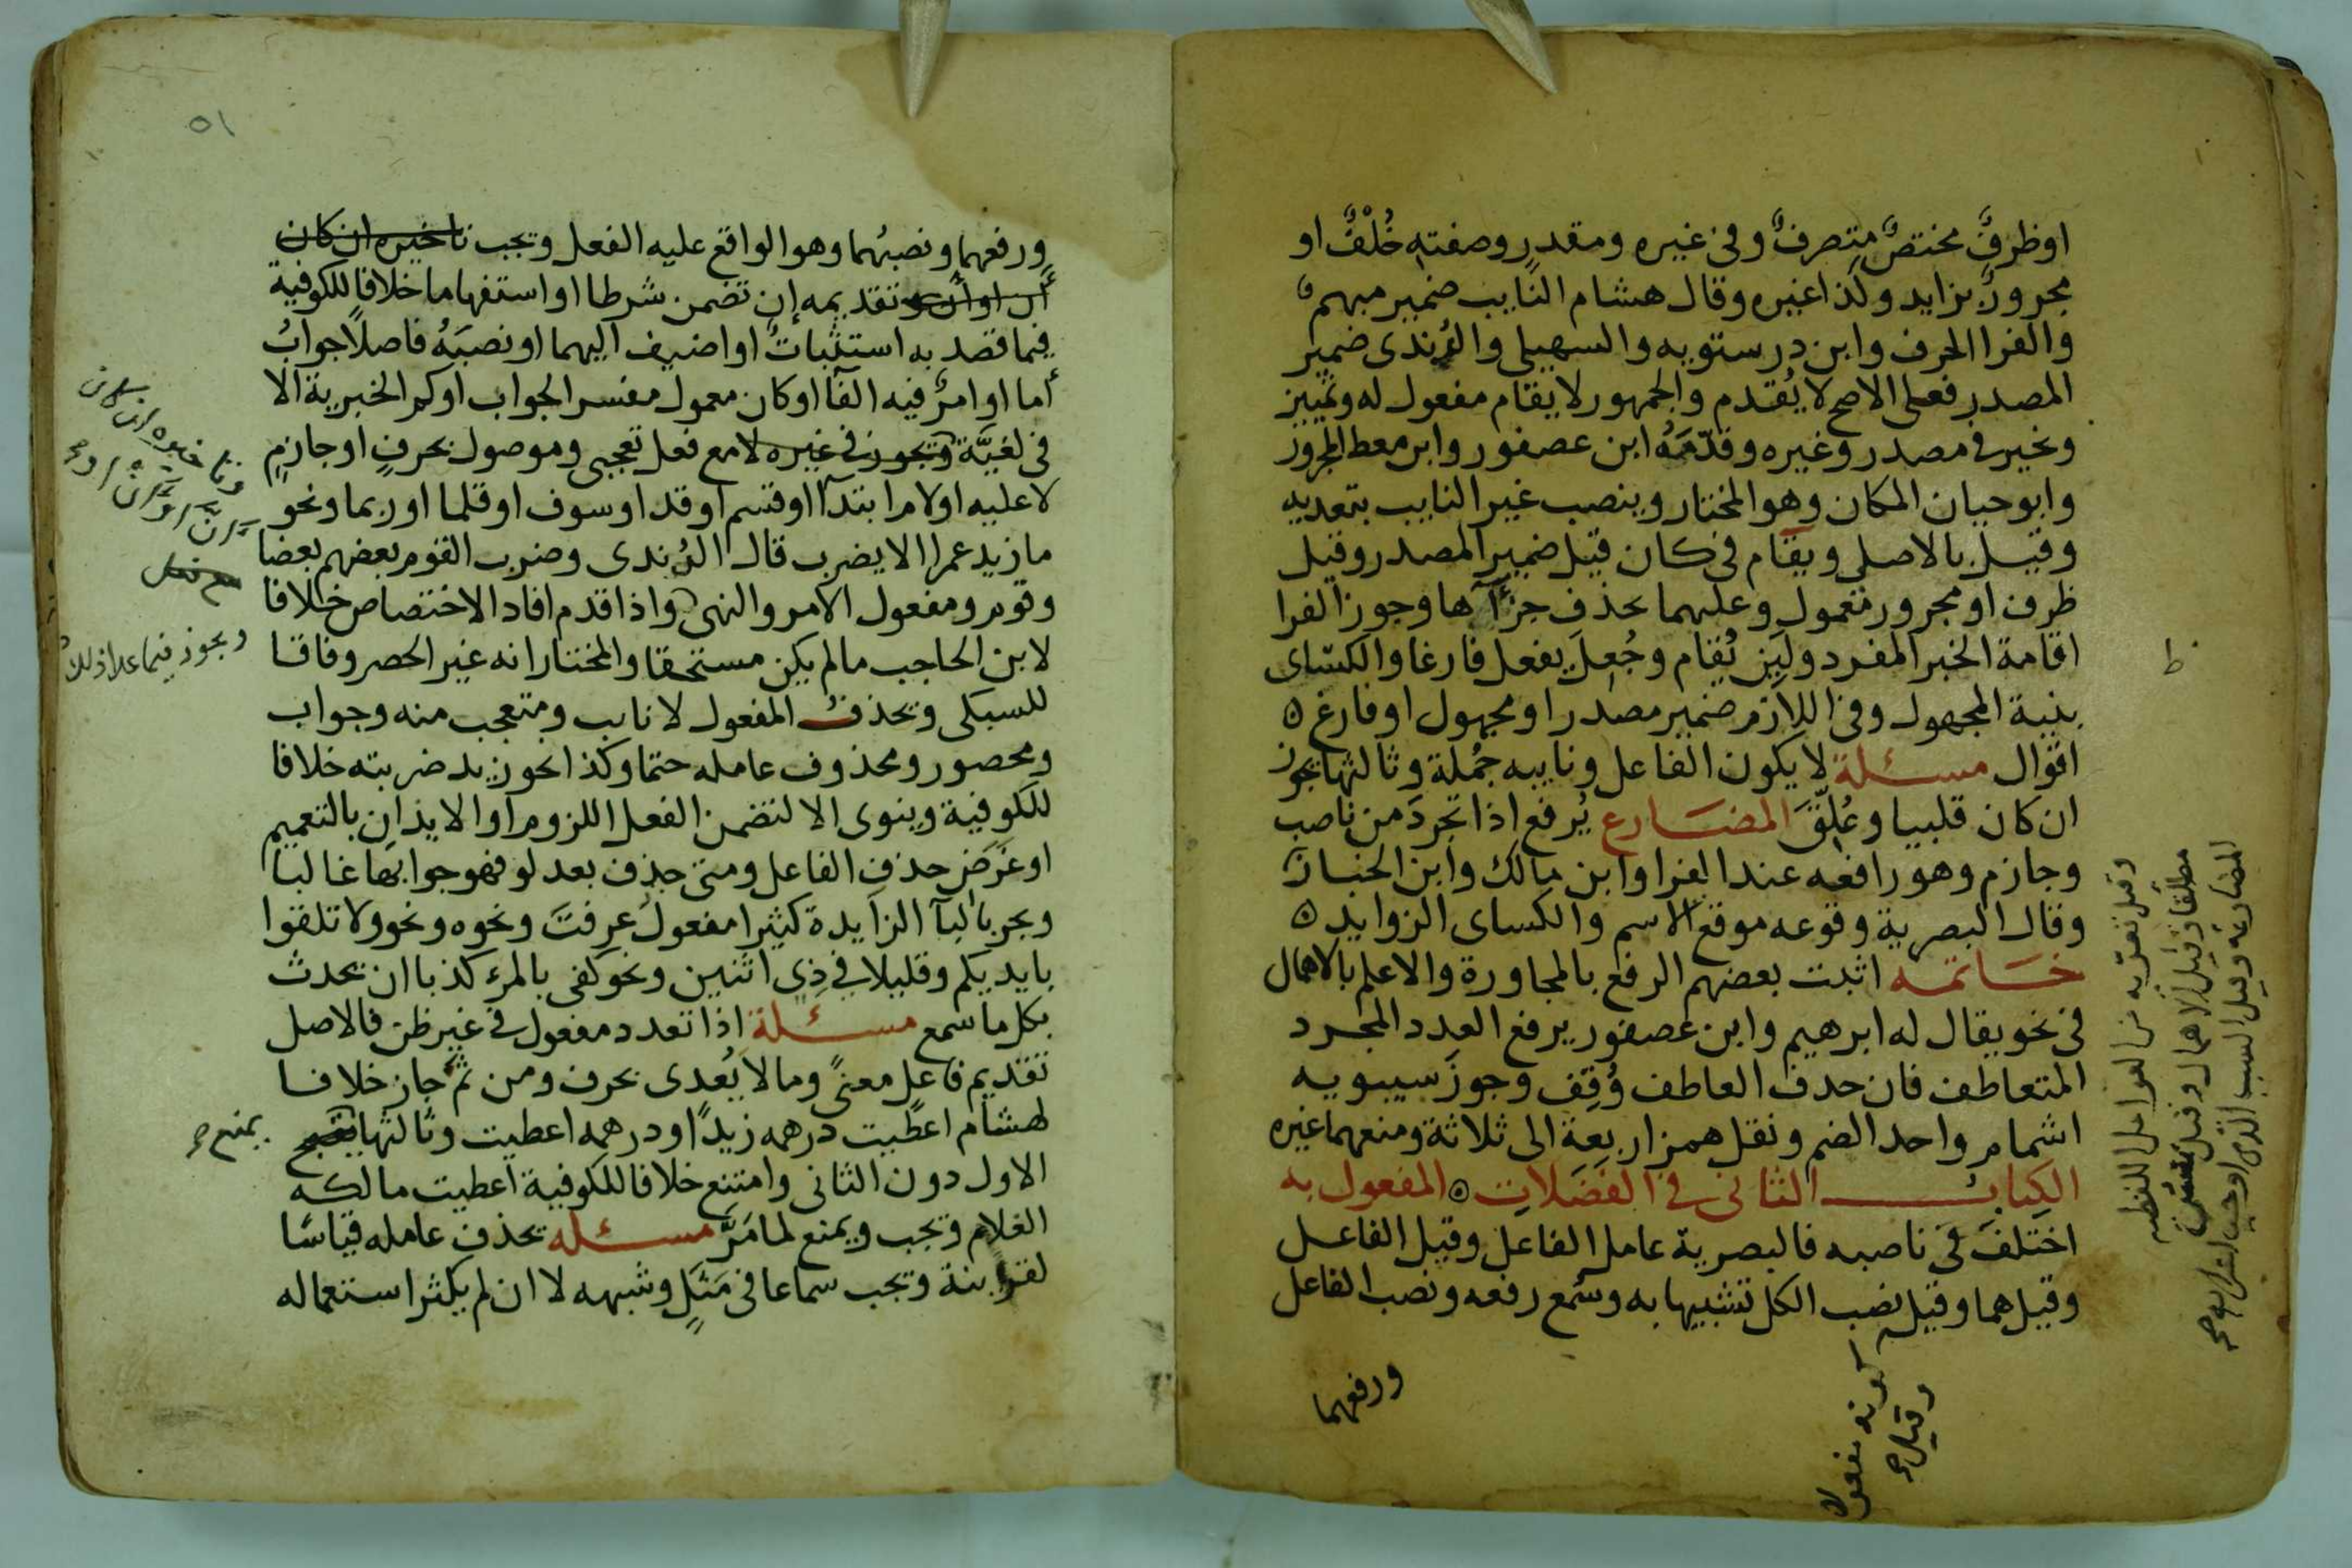 اوظرفٌ مختصٌ متصرفٌ وفى غيره ومقدرٍ وصفته خُلْفٌ او
مجرورٌ بزايد وكذا غيره وقال هشام النايب ضمير مبهم
والفرا الحرف وابن درستويه والسهيلى والرُندى ضمير
المصدر فعلى الاصح لا يُقدم والجمهور لا يقام مفعول له وتمييز
ونخير فى مصدر وغيره وقدّمَهُ ابن عصفور وابن معط المجرور
وابو حيان المكان وهو المختار وينصب غير النايب بتعديه
وقيل بالاصلى ويقام فى كان قيل ضمير المصدر وقيل
ظرف او مجرور معمول وعليهما بحذف جزءاها وجوز الفرا
اقامة الخبر المفرد وليز يُقام وجُعِل يفعل فارغا والكسائى
بنية المجهول وفى اللازم ضمير مصدر او مجهول او فارغ ٥
اقوال مسئلة لا يكون الفاعل ونايبه جُملة وثالثها يجوز
ان كان قلبيا وعُلِّقَ المضارع يُرفع اذا تجردَ من ناصب
وجازم وهو رافعه عند الفرا وابن مالك وابن الخباز
وقال البصرية وقوعه موقع الاسم والكساى الزوايد ٥
خاتمه اثبت بعضهم الرفع بالمجاورة والاعلم بالاهمال
فى نحو يقال له ابرهيم وابن عصفور يرفع العدد المجرد
المتعاطف فان حذف العاطف وُقِف وجوز سيبويه
اشمام واحد الضم ونقل همز اربعة الى ثلاثة ومنعهما غيره
الكتاب الثانى فى الفَضَلات ٥ المفعول به
اختلفَ فى ناصبه فالبصرية عامل الفاعل وقيل الفاعل
وقيل هما وقيل نصب الكل تشبيها به وسُمع رفعه ونصب الفاعل
ورفعهما
وقيل تعرّيه من العوامل اللفظيه
مطلقا وقيل الاهمال وقيل
المضارعه وقيل السبب الذى اوجب اعرابه صح
وقيل
كونه مفعولا
ط
٥١
ورفعهما ونصبُهما وهو الواقع عليه الفعل ويجب تاخيره ان كان
أنّ او أنْ تقديمه إن تضمن شرطا او استفهاما خلافا للكوفية
فيما قصد به استثباتٌ او اضيف اليهما او نصبَهُ فاصلا جوابُ
أما او امرٌ فيه الفآ او كان معمول مفسر الجواب او كم الخبرية الا
فى لغيَّة ويجوز فى غيره لا مع فعل تعجبى وموصول بحرفٍ او جازمٍ
لا عليه او لام ابتدآ او قسم او قد او سوف او قلما او ربما ونحو
ما زيد عمرا الا يضرب قال الرُندى وضرب القوم بعضهم بعضا
ومفعول الامر والنهى واذا قدم افاد الاختصاص خلافا
لابن الحاجب ما لم يكن مستحقا والمختار انه غير الحصر وفاقا
للسبكى ويحذف المفعول لا نايب ومتعجب منه وجواب
ومحصور ومحذوف عامله حتما وكذا نحو زيد ضربته خلافا
للكوفية وينوى الا لتضمن الفعل اللزوم او الايذان بالتعميم
او غرَض حذف الفاعل ومتى حذف بعد لو فهو جوابها غالبا
ويجر بالبآ الزايدة كثيرا مفعولُ عرفتَ ونحوه ونحو ولا تلقوا
بايديكم وقليلا فى ذِى اثنين ونحو كفى بالمرء كذبا ان يحدث
بكل ما سمع مسئلة اذا تعدد مفعول فى غير ظن فالاصل
تقديم فاعل معنىً وما لا يُعدى بحرف ومن ثَمّ جاز خلافا
لهشام اعطيت درهمه زيدًا ودرهمه اعطيت وثالثها
الاول دون الثانى وامتنع خلافا للكوفية اعطيت مالكه
الغلام ويجب ويمنع لما مَرَّ مسئله يحذف عامله قياسًا
لقرينة ويجب سماعا فى مَثَلٍ وشبهه لا ان لم يكثر استعماله
وتاخيره ان كان
أنّ او أنْ صح
ويجوز فيما عدا ذلك
يمنع صح